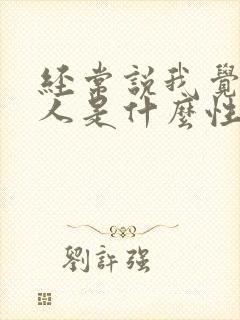 經常說我覺
人是什麼性
劉許强